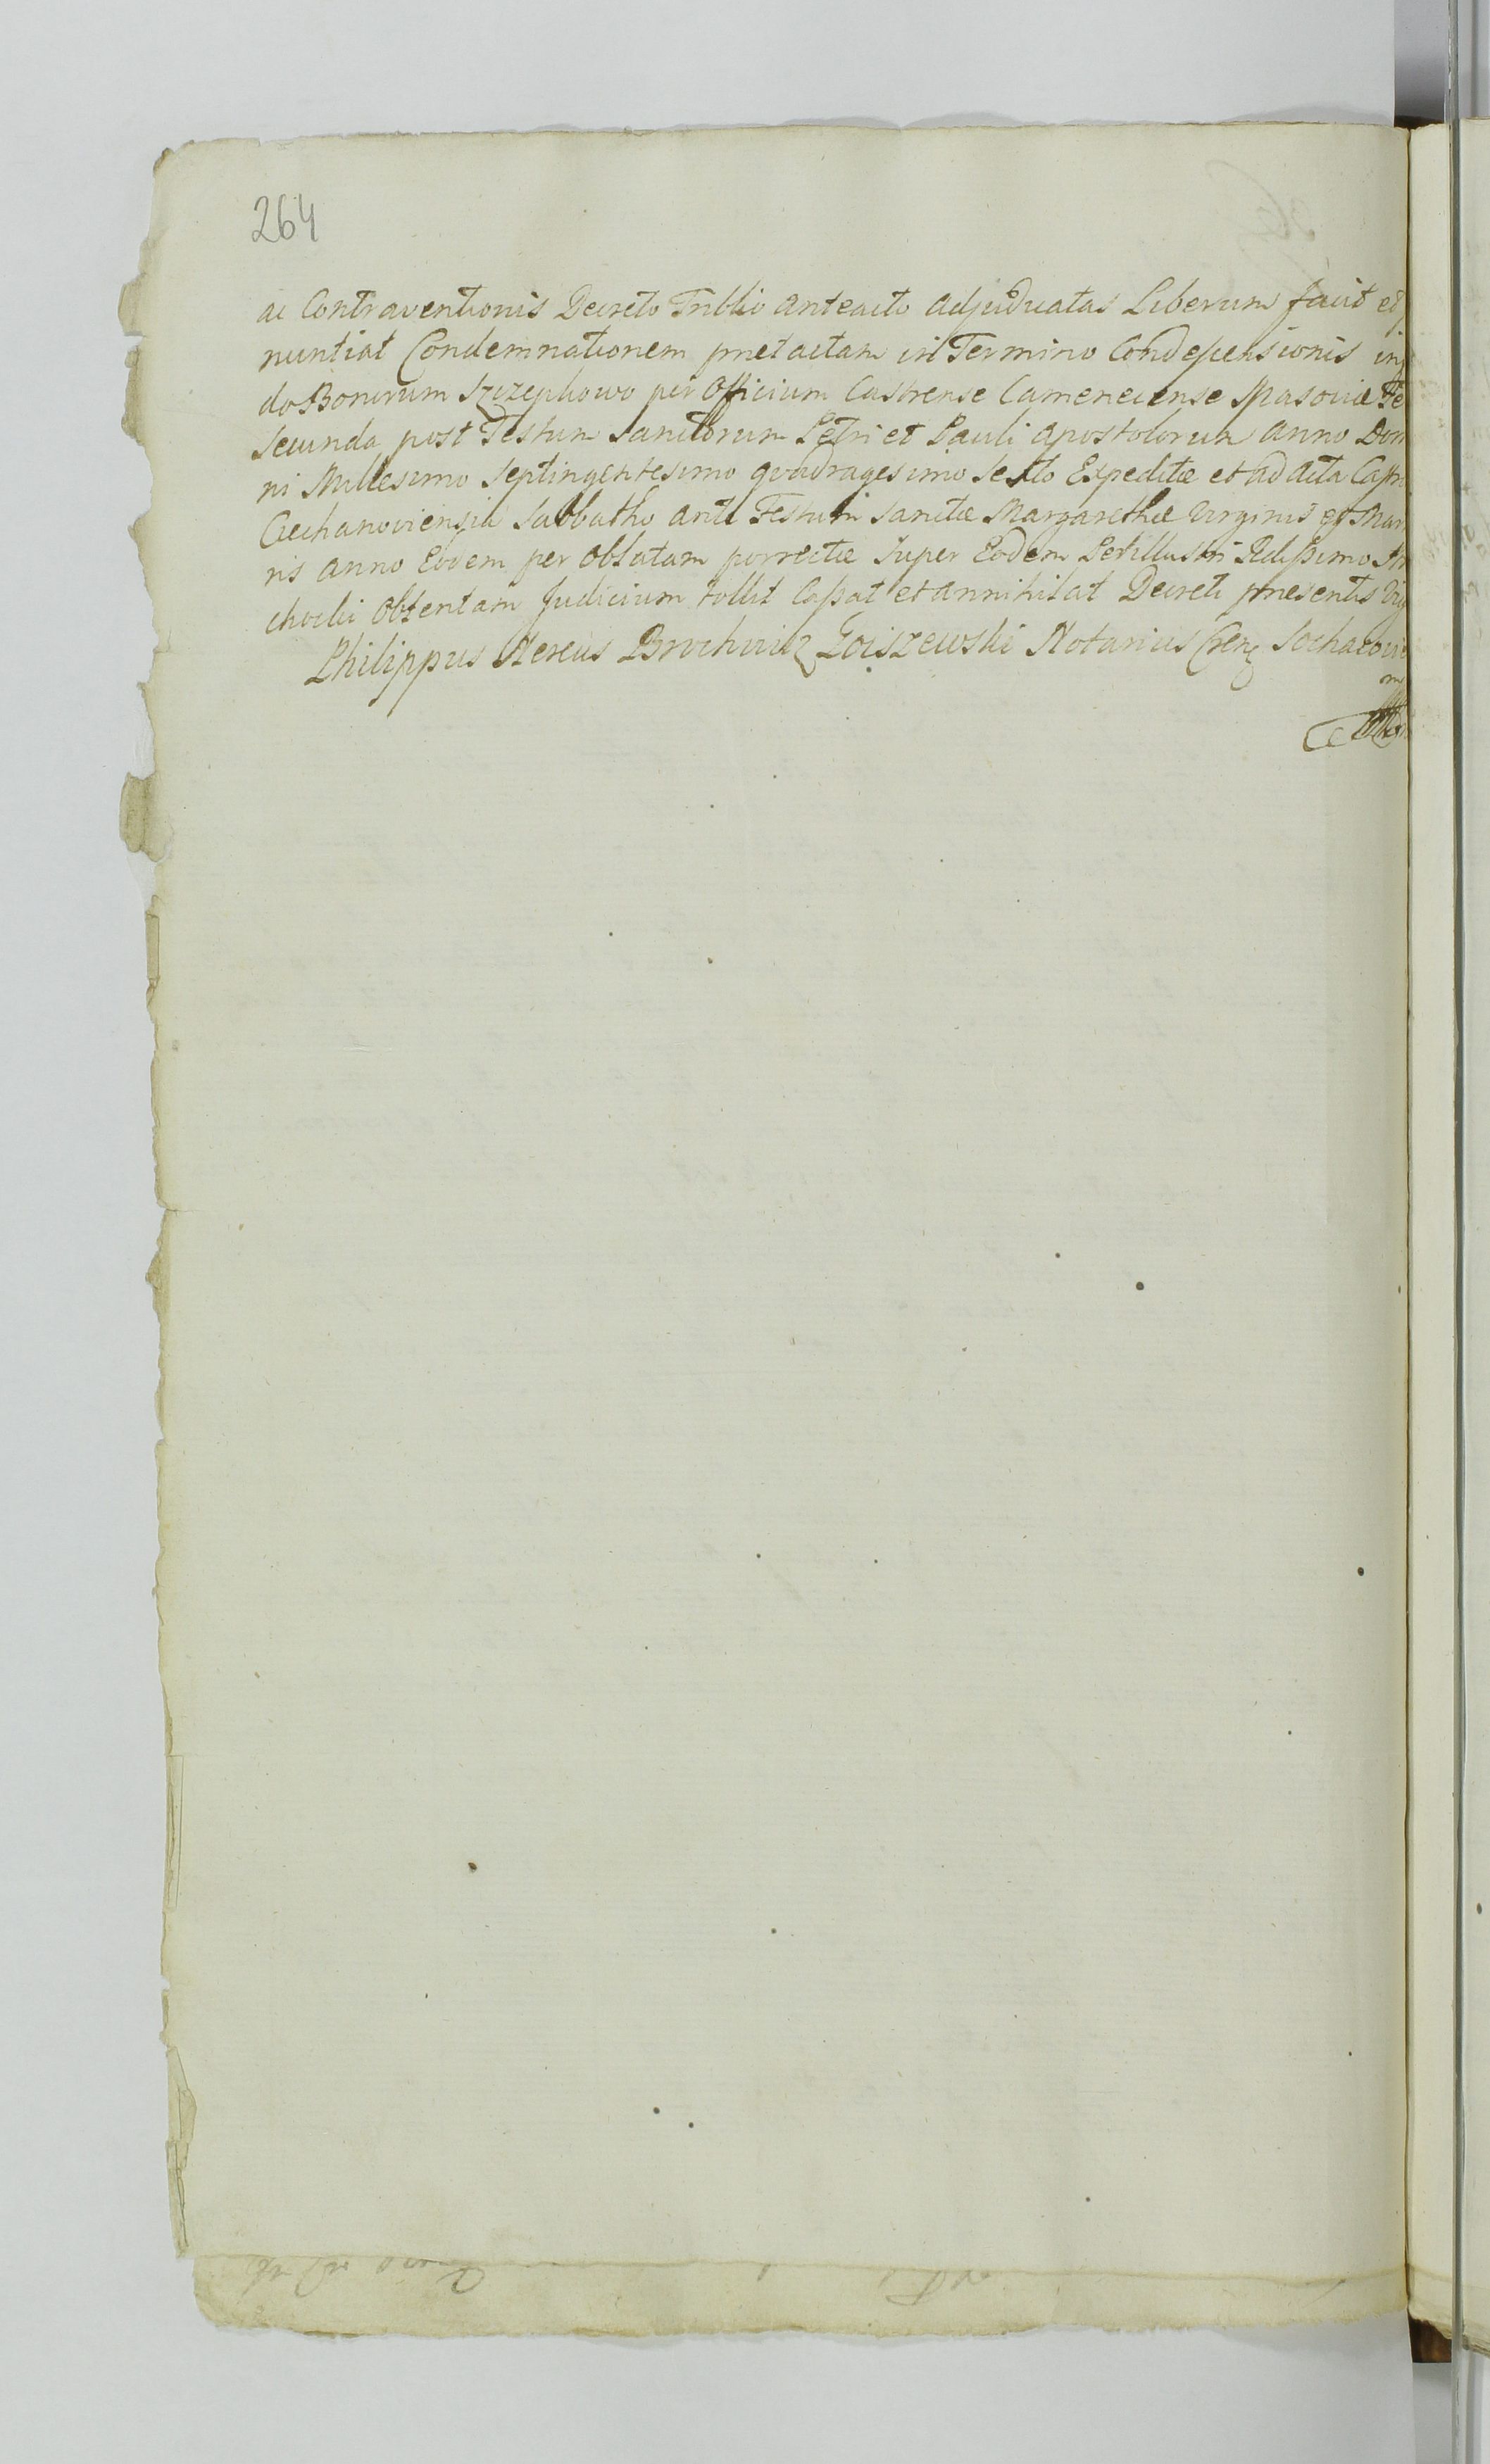 264
ac Contraventionis Decreto Triblio anteacto adjudicatas Liberum facit et
nuntiat Condemnationem prætactam in Termino Condescensionis in
do Bonorum Szczephowo per Officium Castrense Camenecense Masoviæ Fe
secunda post Festum Sanctorum Petri et Pauli Apostolorum Anno Dom
ni Millesimo Septingentesimo quadragesimo Sexto Expeditæ et ad Acta Castr
Ciechanoviensia Sabbatho ante Festum Sanctæ Margarethæ Virginis et Mar
ris Anno Eodem per Oblatam porrectæ Super Eodem Perillustri Rdissimo
obtentam Judicium tollit Cassat et annihilat Decreti præsentis
Philippus Nereus Brochwicz Zoiszewski Notarius Sochacovi